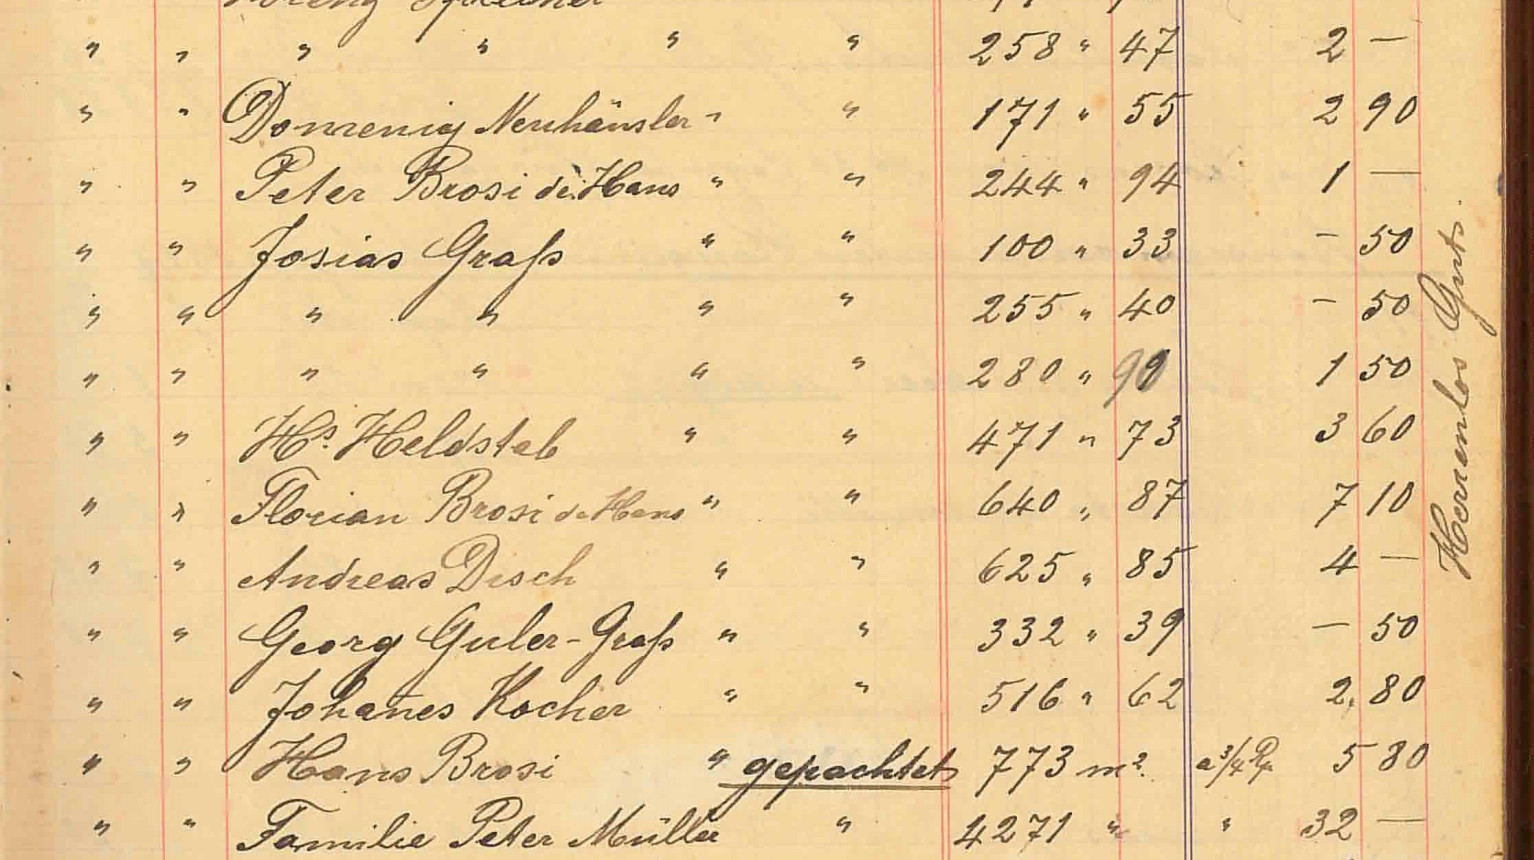 " " " " " " 258 " 47 2 —
" " Domenig Neuhäusler " " 171 " 55 2 90
" " Peter Brosi de Hans " " 244 " 94 1 —
" " Josias Graß " " 100 " 33 — 50
" " " " " " 255 " 40 — 50
" " " " " " 280 " 1 50
" " Hs. Heldstab " " 471 " 73 3 60
" " Florian Brosi de Hans " " 640 " 87 7 10
" " Andreas Disch " " 625 " 85 4 —
" " Georg Guler-Graß " " 332 " 39 — 50
" " Johañes Kocher " " 516 " 62 2. 80
" " Hans Brosi " gepachtet 773 m². a 3/4 Rp 5 80
" " Familie Peter Müller " 4271 " " 32 —
Herrenlos Guts.